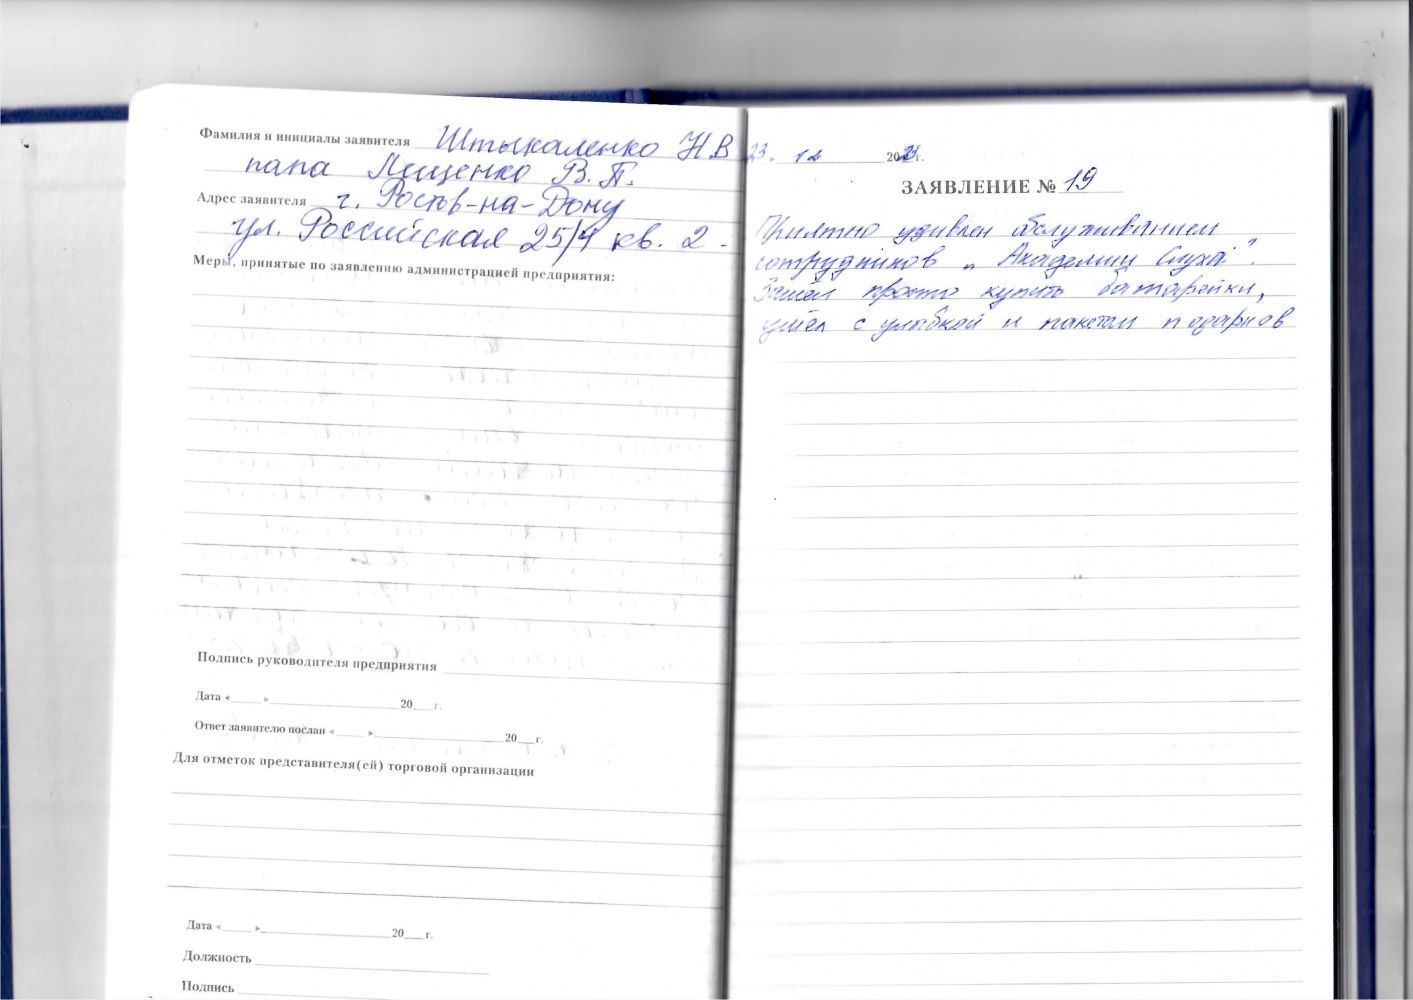 Фамилия и инициалы заявителя Штыкаленко Н В
папа Лященко В. П.
Адрес заявителя г. Ростов-на-Дону
ул. Российская 25/4 кв. 2 -
Меры, принятые по заявлению администрацией предприятия:
Подпись руководителя предприятия
Дата « » 20 г.
Ответ заявителю послан « » 20 г.
Для отметок представителя(ей) торговой организации
Дата « » 20 г.
Должность
Подпись
23. 12 20 г.
ЗАЯВЛЕНИЕ № 19
Приятно удивлен обслуживанием
сотрудников „Академии Слуха".
Зашёл просто купить батарейки,
ушёл с улыбкой и пакетом подарков